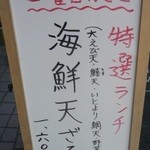 特選ランチ
(大えび天・鱚天・いとより鯛天・野菜
海鮮天ざる
一、六〇